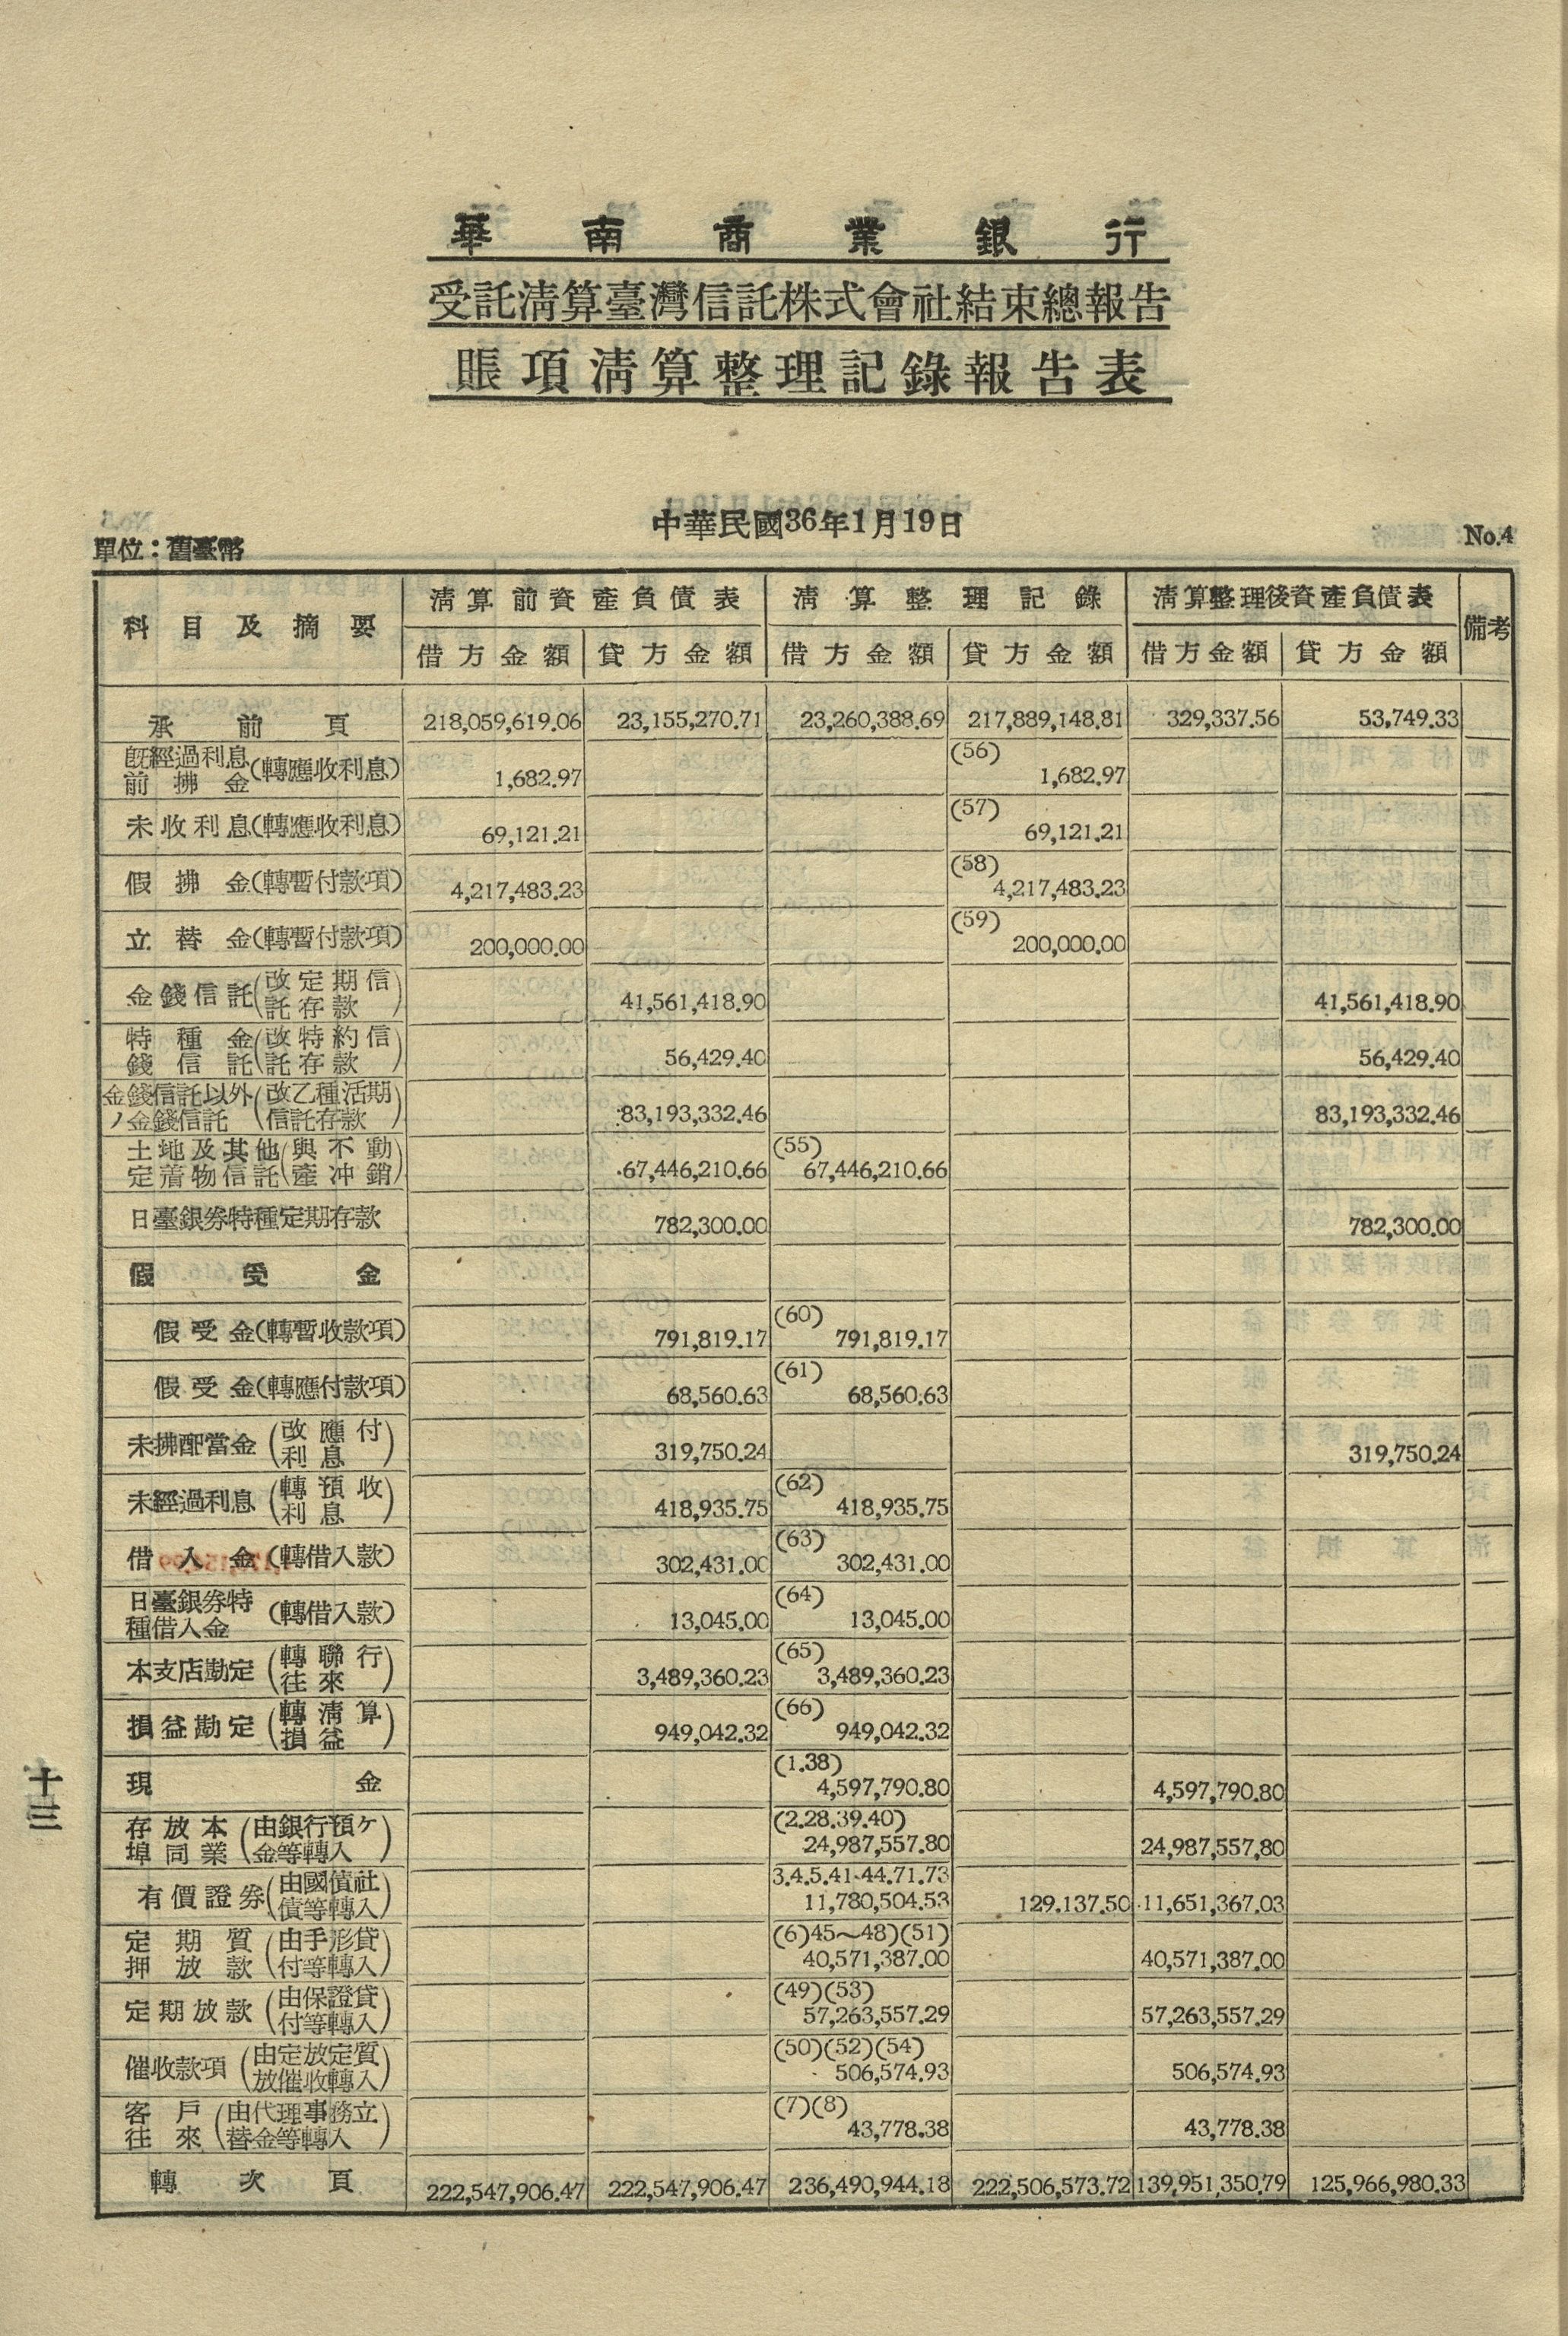 華南商業銀行
受託清算臺灣信託株式會社結束總報告
賬項清算整理記錄報告表
中華民國36年1月19日
單位：舊臺幣 No.4
科目及摘要 清算前資產負債表 清算整理記錄 清算整理後資產負債表 備考
借方金額 貸方金額 借方金額 貸方金額 借方金額 貸方金額
承前頁 218,059,619.06 23,155,270.71 23,260,388.69 217,889,148.81 329,337.56 53,749.33
既經過利息前拂金(轉應收利息) 1,682.97 (56) 1,682.97
未收利息(轉應收利息) 69,121.21 (57) 69,121.21
假拂金(轉暫付款項) 4,217,483.23 (58) 4,217,483.23
立替金(轉暫付款項) 200,000.00 (59) 200,000.00
金錢信託(改定期信託存款) 41,561,418.90 41,561,418.90
特種金錢信託(改特約信託存款) 56,429.40 56,429.40
金錢信託以外ノ金錢信託(改乙種活期信託存款) 83,193,332.46 83,193,332.46
土地及其他定着物信託(與不動產冲銷) 67,446,210.66 (55) 67,446,210.66
日臺銀券特種定期存款 782,300.00 782,300.00
假受金
假受金(轉暫收款項) 791,819.17 (60) 791,819.17
假受金(轉應付款項) 68,560.63 (61) 68,560.63
未拂配當金(改應付利息) 319,750.24 319,750.24
未經過利息(轉預收利息) 418,935.75 (62) 418,935.75
借入金(轉借入款) 302,431.00 (63) 302,431.00
日臺銀券特種借入金(轉借入款) 13,045.00 (64) 13,045.00
本支店勘定(轉聯行往來) 3,489,360.23 (65) 3,489,360.23
損益勘定(轉清算損益) 949,042.32 (66) 949,042.32
現金 (1.38) 4,597,790.80 4,597,790.80
存放本埠同業(由銀行預ケ金等轉入) (2.28.39.40) 24,987,557.80 24,987,557,80
有價證券(由國債社債等轉入) 3.4.5.41-44.71.73 11,780,504.53 129.137.50 11,651,367.03
定期質押放款(由手形貸付等轉入) (6)45～48)(51) 40,571,387.00 40,571,387.00
定期放款(由保證貸付等轉入) (49)(53) 57,263,557.29 57,263,557.29
催收款項(由定放定質放催收轉入) (50)(52)(54) 506,574.93 506,574.93
客戶往來(由代理事務立替金等轉入) (7)(8) 43,778.38 43,778.38
轉次頁 222,547,906.47 222,547,906.47 236,490,944.18 222,506,573.72 139,951,350.79 125,966,980.33
十三